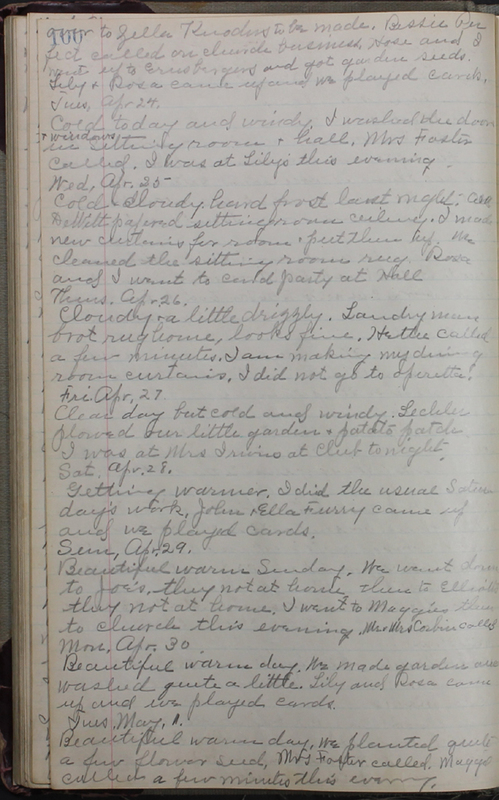 160
to Zella Knoders to be made. Bessie
called on church business, Rose and I
went up to Ernsbergers and got garden seeds.
Lily & Rosa came up and we played cards.
Tues, Apr 24.
Cold today and windy, I washed the doors
& windows
in sitting room & hall, Mrs Foster
called. I was at Lilys this evening.
Wed, Apr. 25-
Cold & cloudy, hard frost last night;
DeWitt papered sitting room ceiling. I made
new curtains for room & put them up. We
cleaned the sitting room rug. Rosa
and I went to card party at Hall
Thurs. Apr. 26.
Cloudy & a little drizzly. Laundry man
brot rug home, looks fine. Hettie called
a few minutes. I am making my dining
room curtains, I did not go to operetta.
Fri. Apr, 27.
Clear day but cold and windy. Lechlei
plowed our little garden & potato patch
I was at Mrs Irwins at Club tonight.
Sat. Apr. 28.
Getting warmer, I did the usual Satur
day's work, John & Ella Furry came up
and we played cards.
Sun, Apr. 29.
Beautiful warm Sunday. We went down
to Joe's, they not at home, then to Elliotts
they not at home, I went to Maggies then
to church this evening. Mr & Mrs Corbin called
Mon, Apr. 30.
Beautiful warm day, We made garden and
washed quite a little. Lily and Rosa came
up and we played cards.
Tues, May, 1.
Beautiful warm day, We planted quite
a few flower seed, Mrs Foster called, Maggie
called a few minutes this evening.